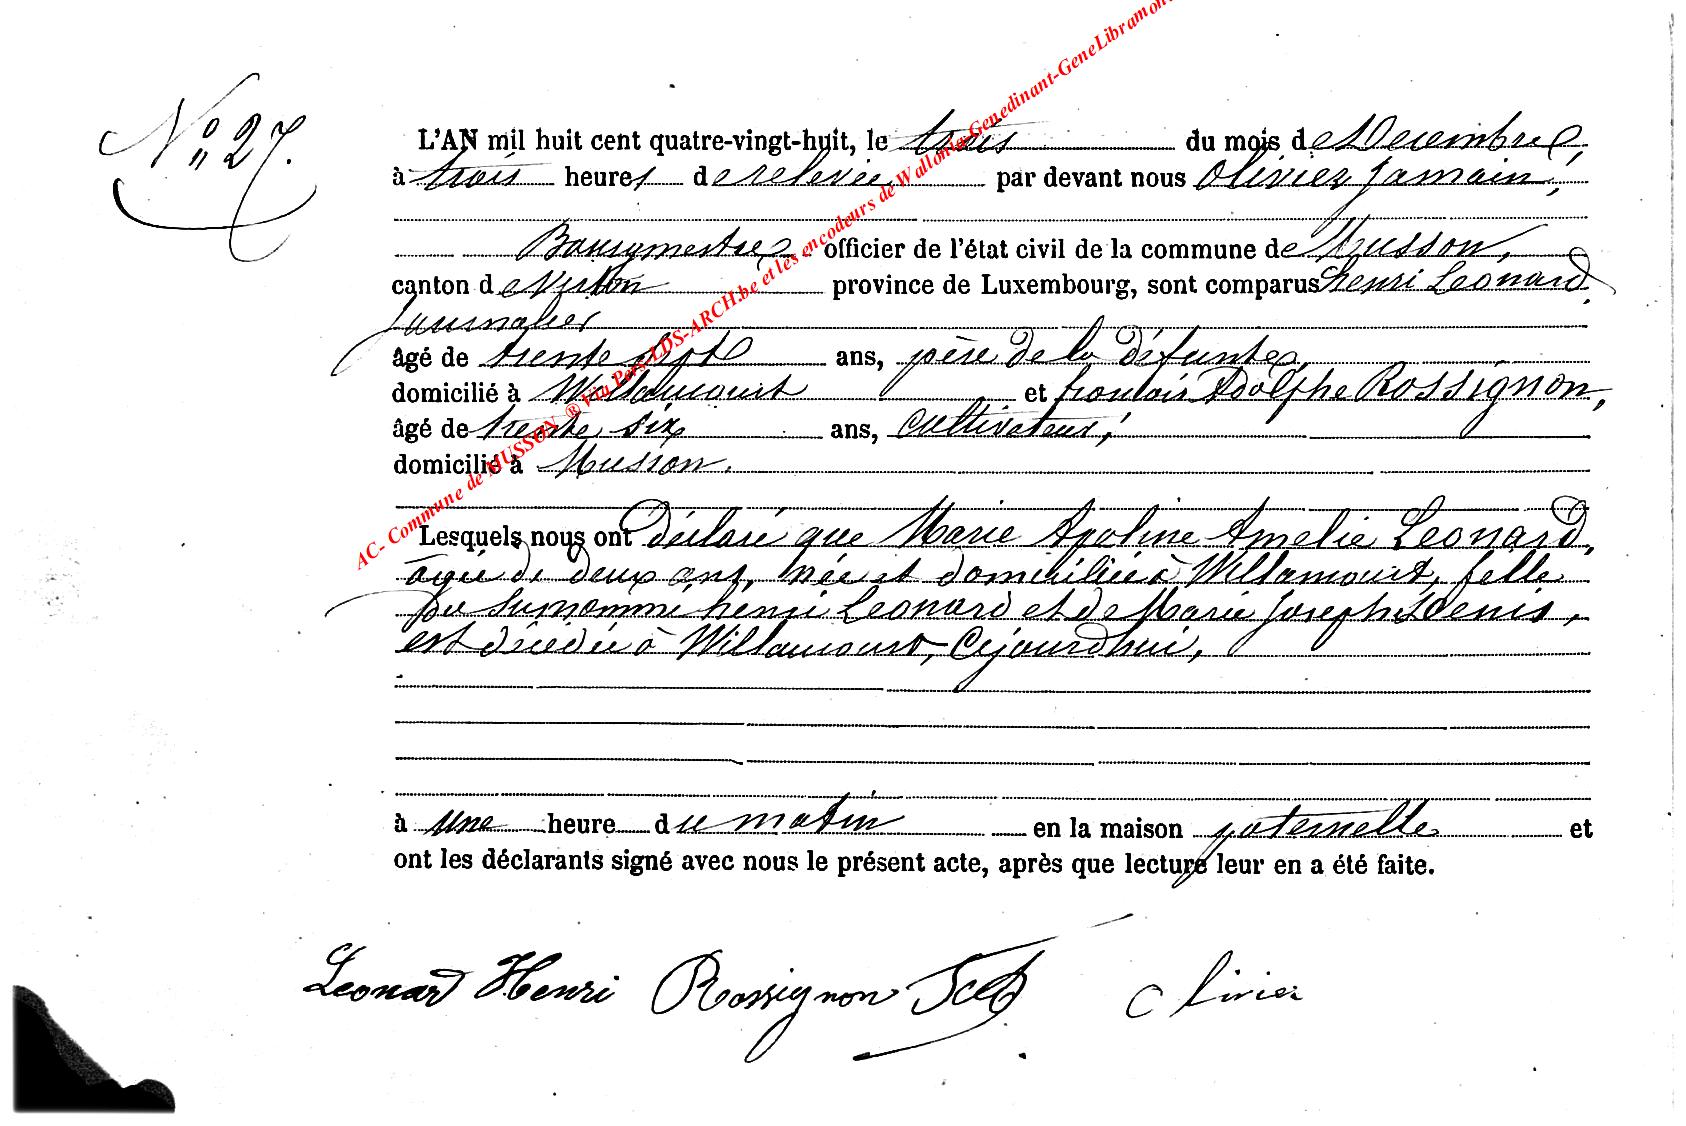 N° 27.
L'AN mil huit cent quatre-vingt-huit, le trois du mois de Decembre,
à trois heures de relevée par devant nous Olivier Jamain,
Bourgmestre officier de l'état civil de la commune de Musson,
canton de Virton province de Luxembourg, sont comparus henri Leonard,
Journalier
âgé de trente sept ans, père de la défunte,
domicilié à Willancourt et francois Adolphe Rossignon,
âgé de trente six ans, cultivateur,
domicilié à Musson.
Lesquels nous ont déclaré que Marie Apoline Amelie Leonard,
âgée de deux ans, née et domiciliée à Willancourt, fille
du surnommé henri Leonard et de Marie Joseph Denis,
est décédée à Willancourt, Cejourdhui,
à une heure du matin en la maison paternelle et
ont les déclarants signé avec nous le présent acte, après que lecture leur en a été faite.
Leonard Henri Rossignon Olivier
AC- Commune de MUSSON ® Via Pers-LDS-ARCH.be et les encodeurs de Wallonia-Genedinant-GeneLibramon